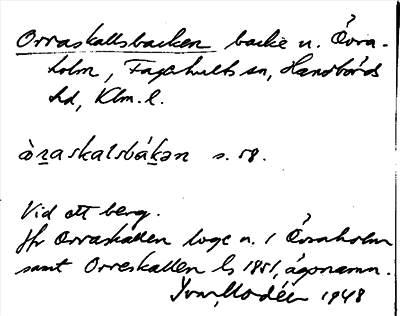 Orraskallsbacken backe n. Övra-
holm, Fagerhults sn, Handbörds
hd, Klm. l.
òraskalsbákən s. 58.
Vid ett berg.
Jfr Orraskallen loge n. 1 Övraholm
samt Orreskallen ls 1851, ägonamn.
Ivar Modéer 1948